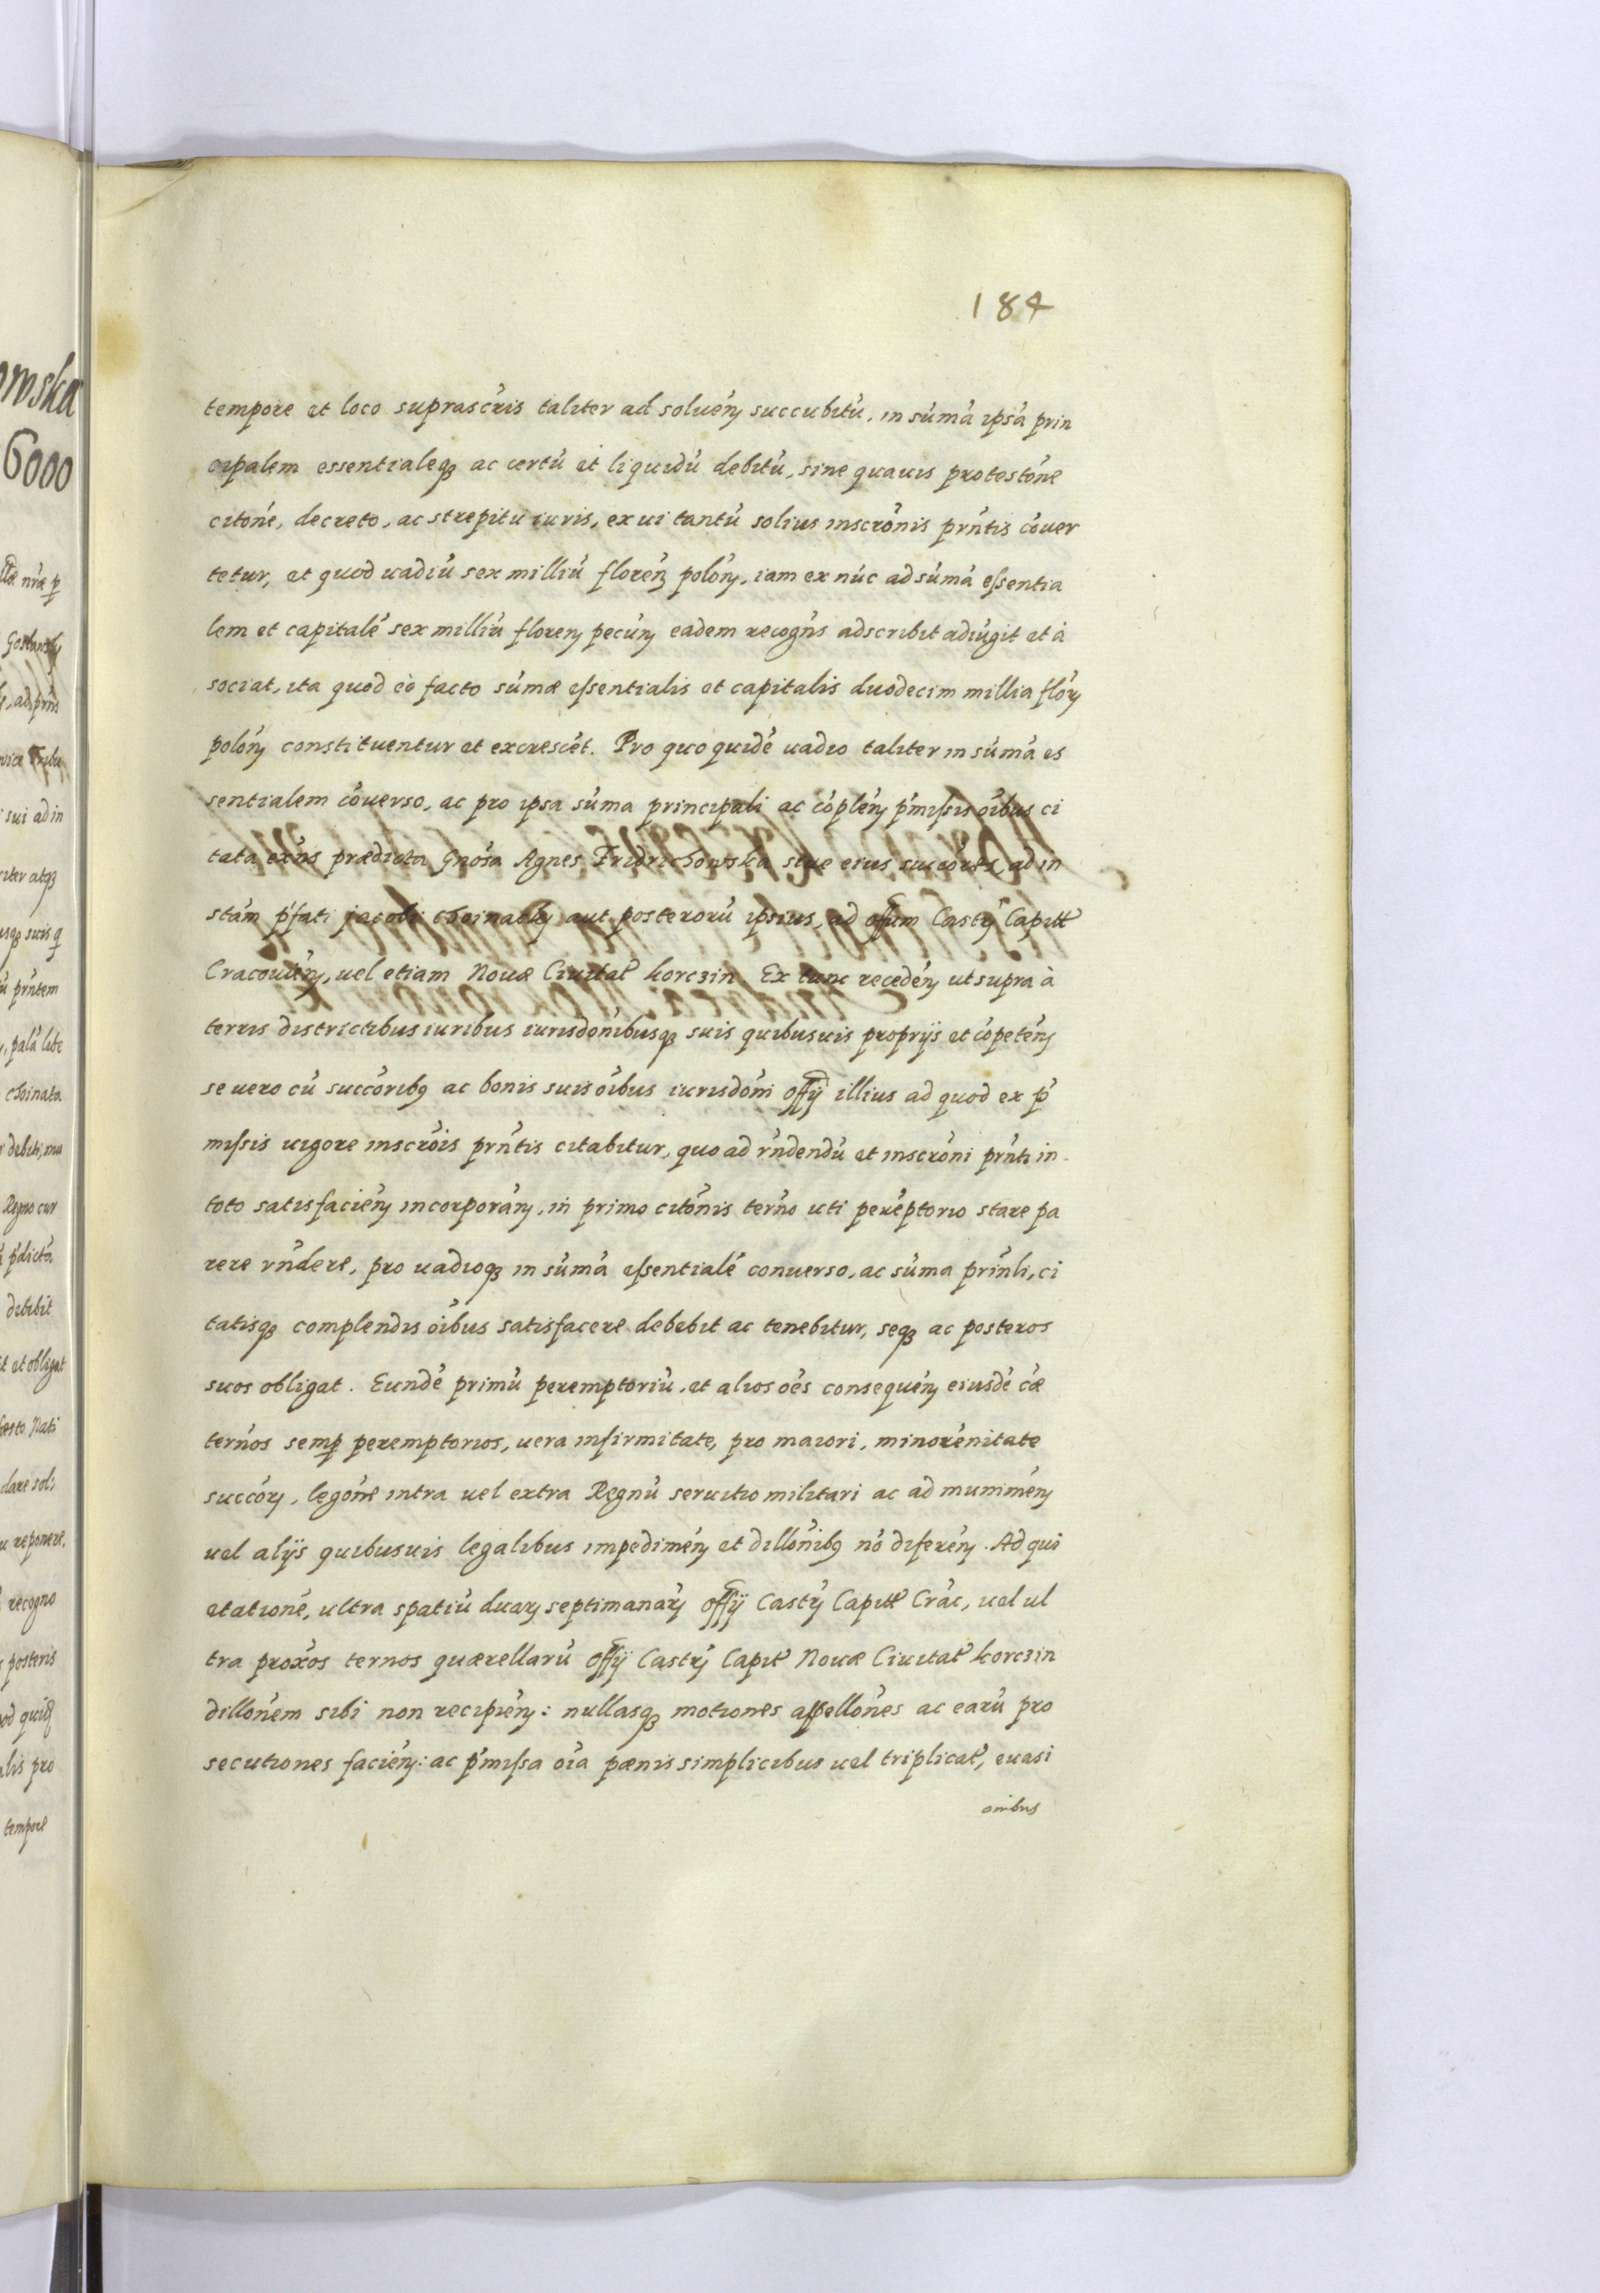 184
tempore et loco suprascris taliter ad soluen succubitu, in suma ipsa prin
cipalem essentialeq3 ac certu et liquidu debitu, sine quauis protestone
citone, decreto, ac strepitu iuris, ex ui tantu solius inscronis prntis couer
tetur, et quod uadiu sex milliu floren polon, iam ex nuc ad suma essentia
lem et capitale sex milliu floren pecun eadem recogns adscribit adiugit et a
sociat, ita quod eo facto sumæ essentialis et capitalis duodecim millia flor
polon constituentur et excrescet. Pro quo quide uadio taliter in suma es
sentialem couerso, ac pro ipsa suma principali ac coplen pmissis oibus ci
tata exns prædicta Gnosa Agnes Fridrichowska siue eius succores, ad in
stam pfati jacobi choinacky aut posteroru ipsius, ad offum Castr Capitt
Cracouien, uel etiam Nouæ Ciuitat korczin Ex tunc receden ut supra à
terris districtibus iuribus iurisdonibusq3 suis quibusuis proprijs et copeten
se uero cu succorib9 ac bonis suis oibus iurisdoni offij illius ad quod ex p
missis uigore inscrois prntis citabitur, quo ad rndendu et inscroni prnti in
toto satisfacien incorporan, in primo citonis terno uti pereptorio stare pa
rere rndere, pro uadioq3 in suma essentiale conuerso, ac suma prinli, ci
tatisq3 complendis oibus satisfacere debebit ac tenebitur, seq3 ac posteros
suos obligat. Eunde primu peremptoriu, et alios oes consequen eiusde cæ
ternos semp peremptorios, uera infirmitate, pro maiori, minorenitate
succor, legone intra uel extra Regnu seruitio militari ac ad munimen
uel alijs quibusuis legalibus impedimen et dillonib9 no diferen. Ad qui
etatione, ultra spatiu duar septimanar offij Castr Capitt Crac, uel ul
tra proxos ternos quærellaru offij Castr Capit Nouæ Ciuitat korczin
dillonem sibi non recipien: nullasq3 motiones appellones ac earu pro
secutiones facien: ac pmissa oia pænis simplicibus uel triplicat, euasi
onibus